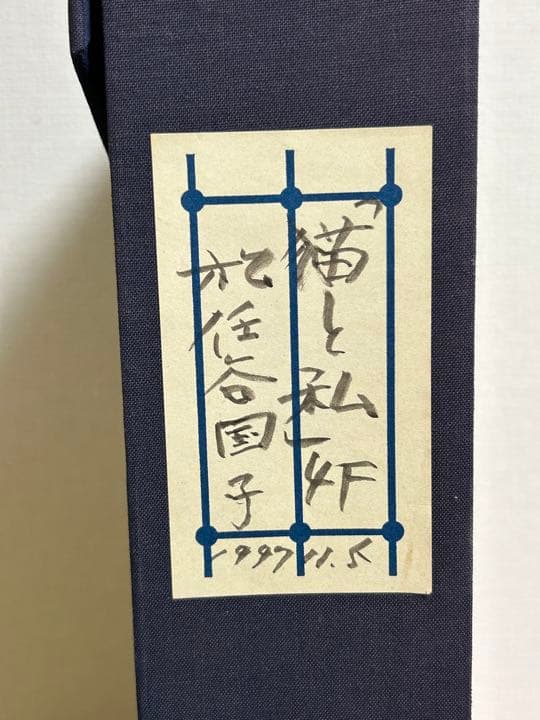 「猫と私」4F
松任谷国子
1997.11.5